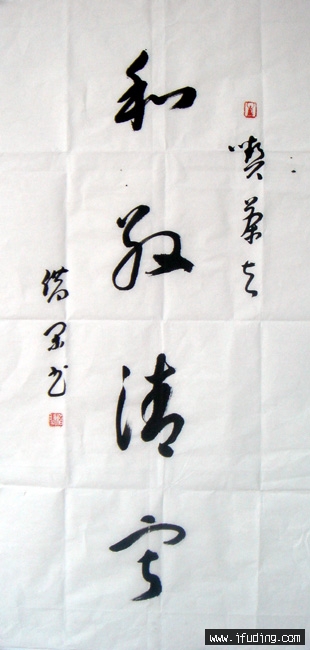 喫茶去
和敬清寂
书
www.ifuding.com